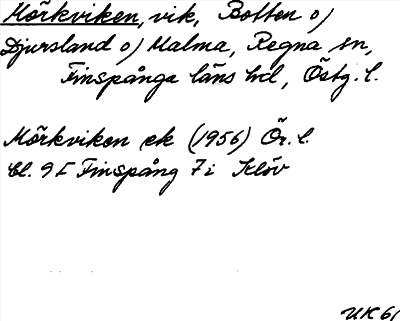 Mörkviken, vik, Botten o)
Djursland o) Malma, Regna sn,
Finspånga läns hd, Östg. l.
Mörkviken ek (1956) Ö. l.
Bl. 9 F Finspång 7 i Klöv
UK 61